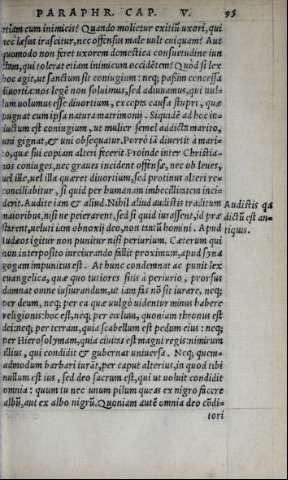 PARAPHR. CAP. V. 95
etiam cum inimicis? Quando molietur exitiũ uxori, qui
nec læsus irascitur, nec offensus male uult cuiquam? Aut
quomodo non feret uxorem domestica consuetudine iun
ctam, qui tolerat etiam inimicum occidẽtem? Quòd si lex
hoc agit, ut sanctum sit coniugium: neq; passim concessa
diuortia: nos legẽ non soluimus, sed adiuuamus, qui nul
lum uolumus esse diuortium, excepta causa stupri, quæ
pugnat cum ipsa natura matrimonij. Siquidẽ ad hoc in
stitutum est coniugium, ut mulier semel addicta marito,
uni gignat, & uni obsequatur. Porrò iã diuertit à mari
to, quæ sui copiam alteri fecerit. Proinde inter Christia-
nos coniuges, nec graues incident offensæ, nec ob leues,
uel ille, uel illa quæret diuortium, sed protinus alteri re-
conciliabitur, si quid per humanam imbecillitatem inci-
derit. Audite iam & aliud. Nihil aliud audistis traditum
maioribus, nisi ne peierarent, sed si quid iurassent, id præ
starent, ueluti iam obnoxij deo, non tantũ homini. Apud
Iudæos igitur non punitur nisi periurium. Cæterum qui
non interposito iureiurando fallit proximum, apud syna
gogam impunitus est. At hunc condemnat ac punit lex
euangelica, quæ quo tutiores sitis à periurio, prorsus
damnat omne iusiurandum, ut iam fas nõ sit iurare, neq;
per deum, neq; per ea quæ uulgò uidentur minus habere
religionis: hoc est, neq; per cœlum, quoniam thronus est
dei: neq; per terram, quia scabellum est pedum eius: neq;
per Hierosolymam, quia ciuitas est magni regis: nimirum
illius, qui condidit & gubernat uniuersa. Neq; quem-
admodum barbari iurãt, per caput alterius, in quod tibi
nullum est ius, sed deo sacrum est, qui ut uoluit condidit
omnia: quum tu nec unum pilum queas ex nigro facere
albũ, aut ex albo nigrũ. Quoniam autẽ omnia deo cõdi-
tori
Audistis qđ
dictũ est an-
tiquis.